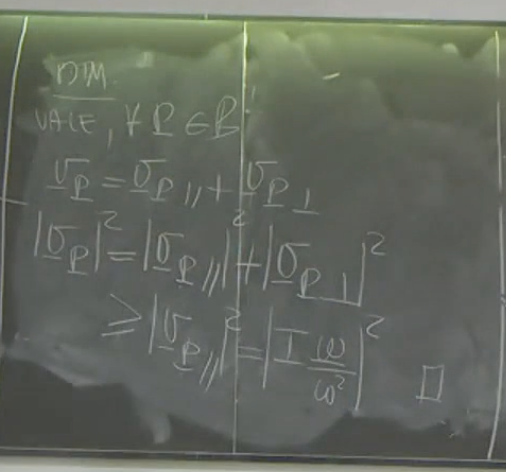 DIM.
VALE, ∀ P ∈ B:
v_P = v_P// + v_P⊥
|v_P|² = |v_P//|² + |v_P⊥|²
≥ |v_P//|² = |I ω/ω²|² □